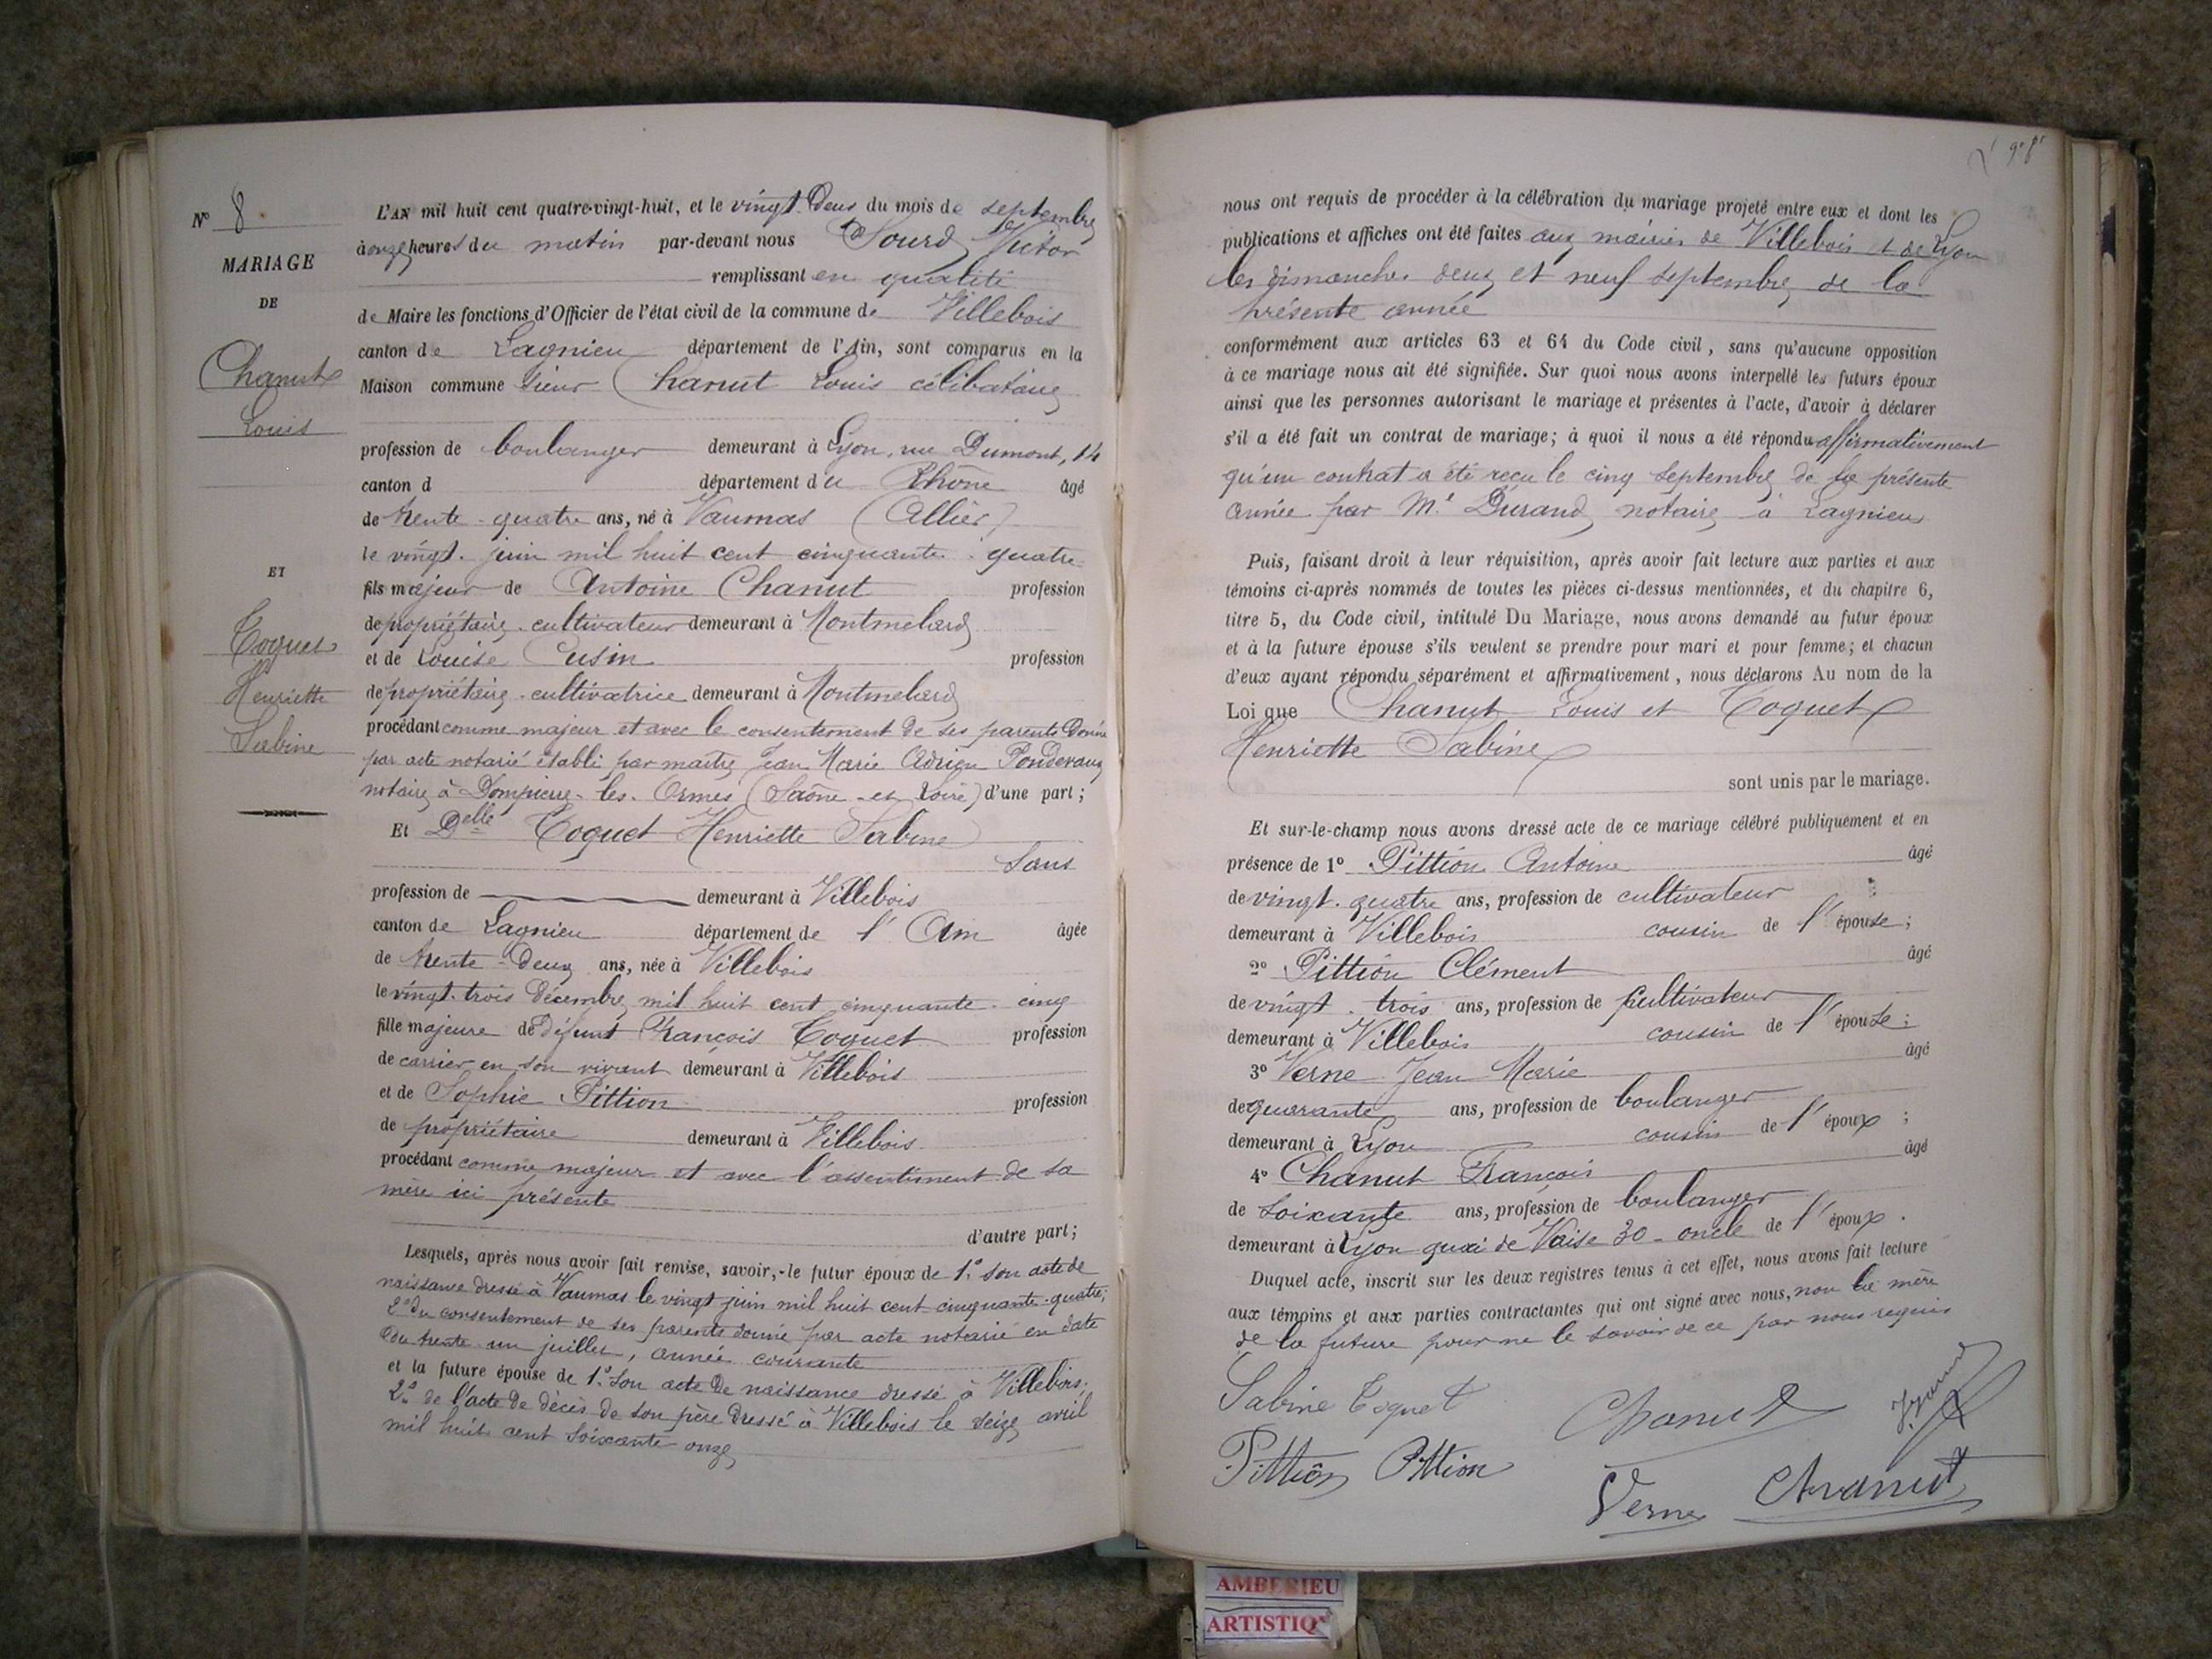 N° 8.
MARIAGE
DE
Chanut
Louis
ET
Coquet
Henriette
Sabine
L'AN mil huit cent quatre-vingt-huit, et le vingt-deux du mois de septembre
à onze heures du matin par-devant nous Sourd Victor
remplissant en qualité
de Maire les fonctions d'Officier de l'état civil de la commune de Villebois
canton de Lagnieu département de l'Ain, sont comparus en la
Maison commune sieur Chanut Louis célibataire
profession de boulanger demeurant à Lyon, rue Dumont, 14
canton d département du Rhône âgé
de trente-quatre ans, né à Vaumas (Allier)
le vingt juin mil huit cent cinquante-quatre
fils majeur de Antoine Chanut profession
de propriétaire-cultivateur demeurant à Montmelard
et de Louise Cusin profession
de propriétaire-cultivatrice demeurant à Montmelard
procédant comme majeur et avec le consentement de ses parents donné
par acte notarié établi par maître Jean Marie Adrien Pondevaux
notaire à Dompierre-les-Ormes (Saône-et-Loire) d'une part;
Et Delle Coquet Henriette Sabine
Sans
profession de demeurant à Villebois
canton de Lagnieu département de l'Ain âgée
de trente-deux ans, née à Villebois
le vingt-trois décembre mil huit cent cinquante-cinq
fille majeure de défunt François Coquet profession
de carrier en son vivant demeurant à Villebois
et de Sophie Pittion profession
de propriétaire demeurant à Villebois
procédant comme majeur et avec l'assentiment de sa
mère ici présente
d'autre part;
Lesquels, après nous avoir fait remise, savoir,-le futur époux de 1° son acte de
naissance dressé à Vaumas le vingt juin mil huit cent cinquante-quatre;
2° du consentement de ses parents donné par acte notarié en date
du trente-un juillet, année courante
et la future épouse de 1° son acte de naissance dressé à Villebois;
2° de l'acte de décès de son père dressé à Villebois le seize avril
mil huit cent soixante-onze
nous ont requis de procéder à la célébration du mariage projeté entre eux et dont les
publications et affiches ont été faites aux mairies de Villebois et de Lyon
les dimanches deux et neuf septembre de la
présente année
conformément aux articles 63 et 64 du Code civil, sans qu'aucune opposition
à ce mariage nous ait été signifiée. Sur quoi nous avons interpellé les futurs époux
ainsi que les personnes autorisant le mariage et présentes à l'acte, d'avoir à déclarer
s'il a été fait un contrat de mariage; à quoi il nous a été répondu affirmativement
qu'un contrat a été reçu le cinq septembre de la présente
année par Me Durand notaire à Lagnieu
Puis, faisant droit à leur réquisition, après avoir fait lecture aux parties et aux
témoins ci-après nommés de toutes les pièces ci-dessus mentionnées, et du chapitre 6,
titre 5, du Code civil, intitulé Du Mariage, nous avons demandé au futur époux
et à la future épouse s'ils veulent se prendre pour mari et pour femme; et chacun
d'eux ayant répondu séparément et affirmativement, nous déclarons Au nom de la
Loi que Chanut Louis et Coquet
Henriette Sabine
sont unis par le mariage.
Et sur-le-champ nous avons dressé acte de ce mariage célébré publiquement et en
présence de 1° Pittion Antoine âgé
de vingt-quatre ans, profession de cultivateur
demeurant à Villebois cousin de l'épouse;
2° Pittion Clément âgé
de vingt-trois ans, profession de cultivateur
demeurant à Villebois cousin de l'épouse;
3° Verne Jean Marie âgé
de quarante ans, profession de boulanger
demeurant à Lyon cousin de l'époux;
4° Chanut François âgé
de soixante ans, profession de boulanger
demeurant à Lyon quai de Vaise 30 - oncle de l'époux.
Duquel acte, inscrit sur les deux registres tenus à cet effet, nous avons fait lecture
aux témoins et aux parties contractantes qui ont signé avec nous, non la mère
de la future pour ne le savoir de ce par nous requis
Sabine Coquet Chanut
Pittion Pittion Verne Chanut
AMBERIEU
ARTISTIQ